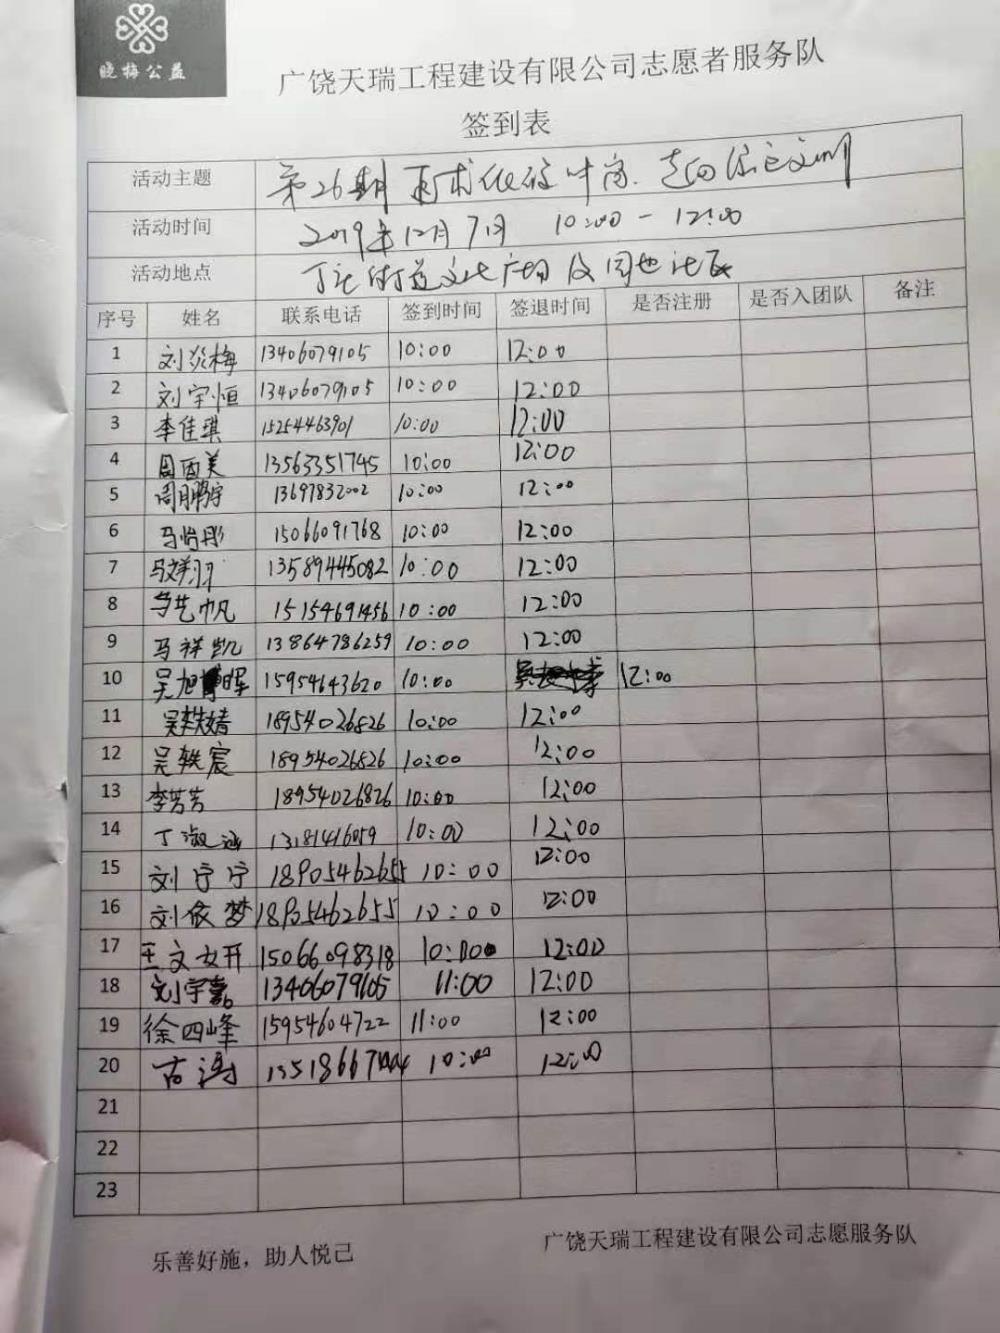 晓梅公益
广饶天瑞工程建设有限公司志愿者服务队
签到表
活动主题 第26期
活动时间 2019年12月7日 10:00-12:00
活动地点 丁庄街道文化广场及同地社区
序号 姓名 联系电话 签到时间 签退时间 是否注册 是否入团队 备注
1 刘炎梅 13406079105 10:00 12:00
2 刘宇恒 13406079105 10:00 12:00
3 李佳琪 15254463901 10:00 12:00
4 周西美 13563351745 10:00 12:00
5 周鹏宇 13697832002 10:00 12:00
6 马尚彤 15066091768 10:00 12:00
7 马翔羽 13589445082 10:00 12:00
8 艺帆 15154691456 10:00 12:00
9 马祥凯 13864786259 10:00 12:00
10 吴旭晖 15954643620 10:00 12:00
11 18954026826 10:00 12:00
12 吴轶宸 18954026826 10:00 12:00
13 李芳芳 18954026826 10:00 12:00
14 丁淑涵 13181416059 10:00 12:00
15 刘宁宁 18905462655 10:00 12:00
16 刘依梦 18905462655 10:00 12:00
17 王文妍 15066098318 10:00 12:00
18 刘宇嘉 13406079105 11:00 12:00
19 徐四峰 15954604722 11:00 12:00
20 古涛 10:00 12:00
21
22
23
乐善好施，助人悦己
广饶天瑞工程建设有限公司志愿服务队